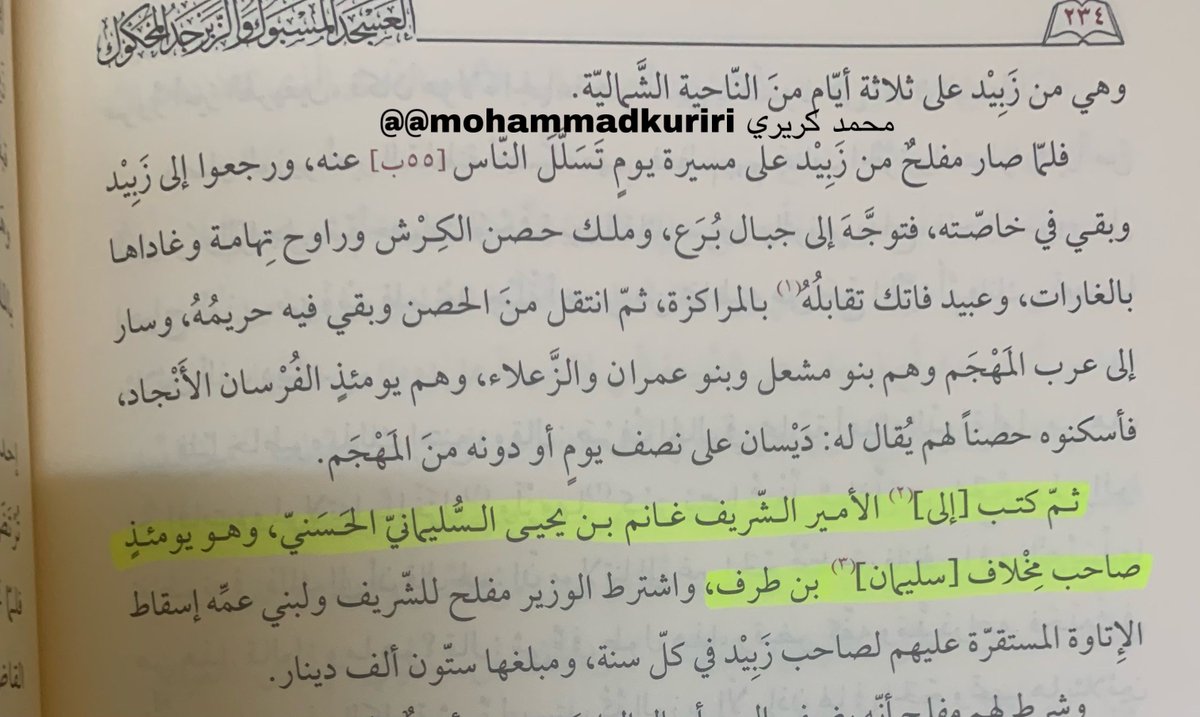 ٢٣٤
العسجد المسبوك والزبرجد المحكوك
وهي من زَبِيْد على ثلاثة أيّام منَ النّاحية الشَّماليّة.
محمد كريري @@mohammadkuriri
فلمّا صار مفلحٌ من زَبِيْد على مسيرة يومٍ تَسَلَّلَ النّاس [٥٥ب] عنه، ورجعوا إلى زَبِيْد
وبقي في خاصّته، فتوجَّهَ إلى جبال بُرَع، وملك حصن الكِرْش وراوح تِهامة وغاداها
بالغارات، وعبيد فاتك تقابلُهُ(١) بالمراكزة، ثمّ انتقل منَ الحصن وبقي فيه حريمُهُ، وسار
إلى عرب المَهْجَم وهم بنو مشعل وبنو عمران والزَّعلاء، وهم يومئذٍ الفُرْسان الأَنْجاد،
فأسكنوه حصناً لهم يُقال له: دَيْسان على نصف يومٍ أو دونه منَ المَهْجَم.
ثمّ كتب [إلى](٢) الأمير الشّريف غانم بن يحيى السُّليمانيّ الحَسَنيّ، وهو يومئذٍ
صاحب مِخْلاف [سليمان](٣) بن طرف، واشترط الوزير مفلح للشّريف ولبني عمّه إسقاط
الإتاوة المستقرّة عليهم لصاحب زَبِيْد في كلّ سنة، ومبلغها ستّون ألف دينار.
وشرط لهم مفلح أنّه